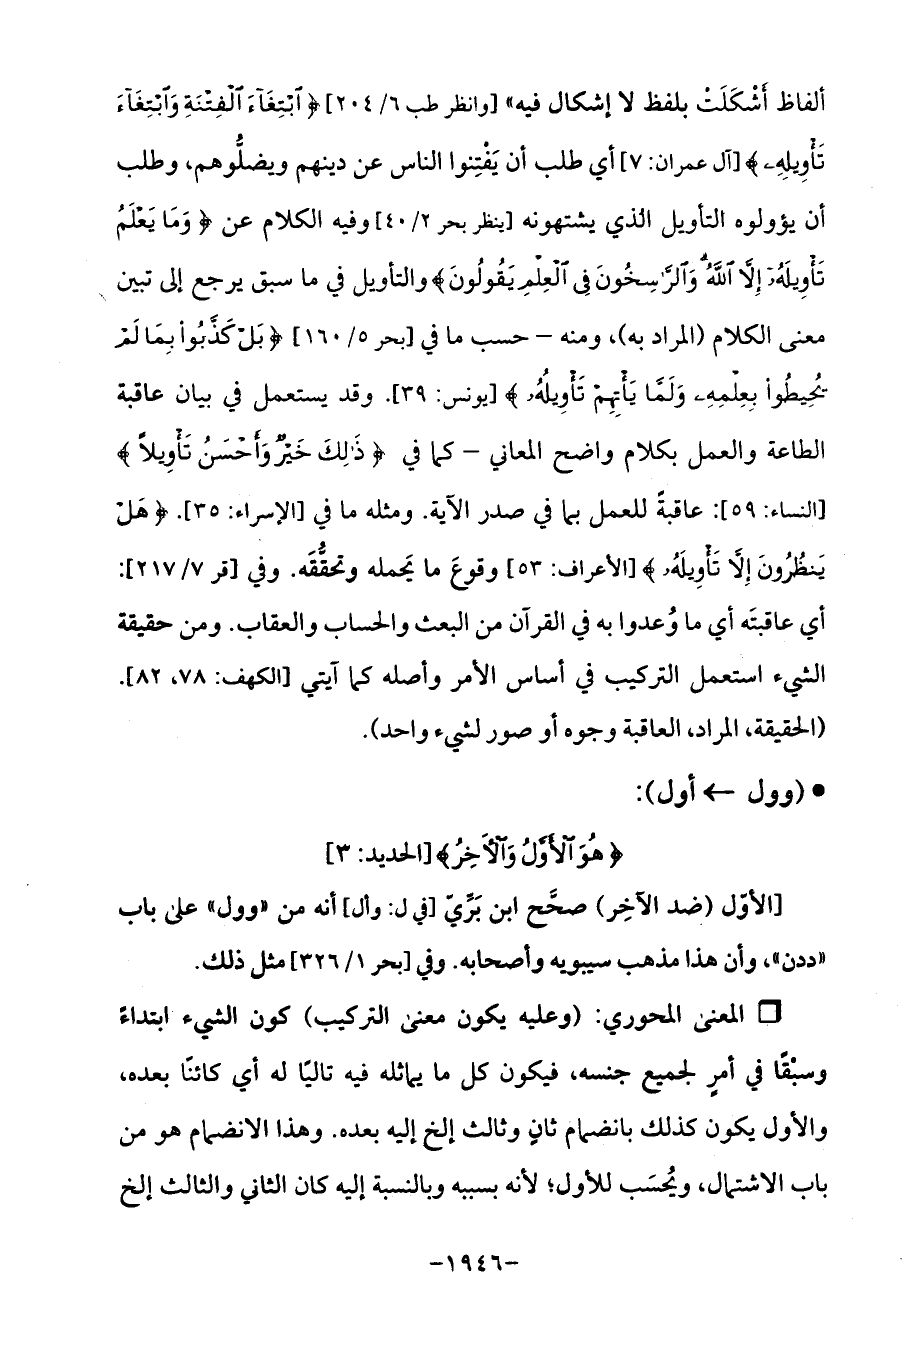 ألفاظ أَشْكَلَتْ بلفظ لا إشكال فيه» [وانظر طب ٦/ ٢٠٤] ﴿ ٱبْتِغَآءَ ٱلْفِتْنَةِ وَٱبْتِغَآءَ
تَأْوِيلِهِۦ ﴾ [آل عمران: ٧] أي طلب أن يَفْتِنوا الناس عن دينهم ويضلُّوهم، وطلب
أن يؤولوه التأويل الذي يشتهونه [ينظر بحر ٢/ ٤٠] وفيه الكلام عن ﴿ وَمَا يَعْلَمُ
تَأْوِيلَهُۥٓ إِلَّا ٱللَّهُ ۗ وَٱلرَّٰسِخُونَ فِى ٱلْعِلْمِ يَقُولُونَ﴾ والتأويل في ما سبق يرجع إلى تبين
معنى الكلام (المراد به)، ومنه – حسب ما في [بحر ٥/ ١٦٠] ﴿ بَلْ كَذَّبُوا۟ بِمَا لَمْ
يُحِيطُوا۟ بِعِلْمِهِۦ وَلَمَّا يَأْتِهِمْ تَأْوِيلُهُۥ ﴾ [يونس: ٣٩]. وقد يستعمل في بيان عاقبة
الطاعة والعمل بكلام واضح المعاني – كما في ﴿ ذَٰلِكَ خَيْرٌ وَأَحْسَنُ تَأْوِيلاً ﴾
[النساء: ٥٩]: عاقبةً للعمل بما في صدر الآية. ومثله ما في [الإسراء: ٣٥]. ﴿ هَلْ
يَنظُرُونَ إِلَّا تَأْوِيلَهُۥ ﴾ [الأعراف: ٥٣] وقوعَ ما يَحمله وتحقُّقَه. وفي [قر ٧/ ٢١٧]:
أي عاقبتَه أي ما وُعدوا به في القرآن من البعث والحساب والعقاب. ومن حقيقة
الشيء استعمل التركيب في أساس الأمر وأصله كما آيتي [الكهف: ٧٨، ٨٢].
(الحقيقة، المراد، العاقبة وجوه أو صور لشيء واحد).
• (وول ← أول):
﴿ هُوَ ٱلْأَوَّلُ وَٱلْأَخِرُ﴾ [الحديد: ٣]
[الأوّل (ضد الآخِر) صحَّح ابن بَرِّيّ [في ل: وأل] أنه من «وول» على باب
«ددن»، وأن هذا مذهب سيبويه وأصحابه. وفي [بحر ١/ ٣٢٦] مثل ذلك.
❒ المعنى المحوري: (وعليه يكون معنى التركيب) كون الشيء ابتداءً
وسبْقًا في أمرٍ لجميع جنسه، فيكون كل ما يماثله فيه تاليًا له أي كائنًا بعده،
والأول يكون كذلك بانضمام ثانٍ وثالث إلخ إليه بعده. وهذا الانضمام هو من
باب الاشتمال، ويُحسَب للأول؛ لأنه بسببه وبالنسبة إليه كان الثاني والثالث إلخ
-١٩٤٦-